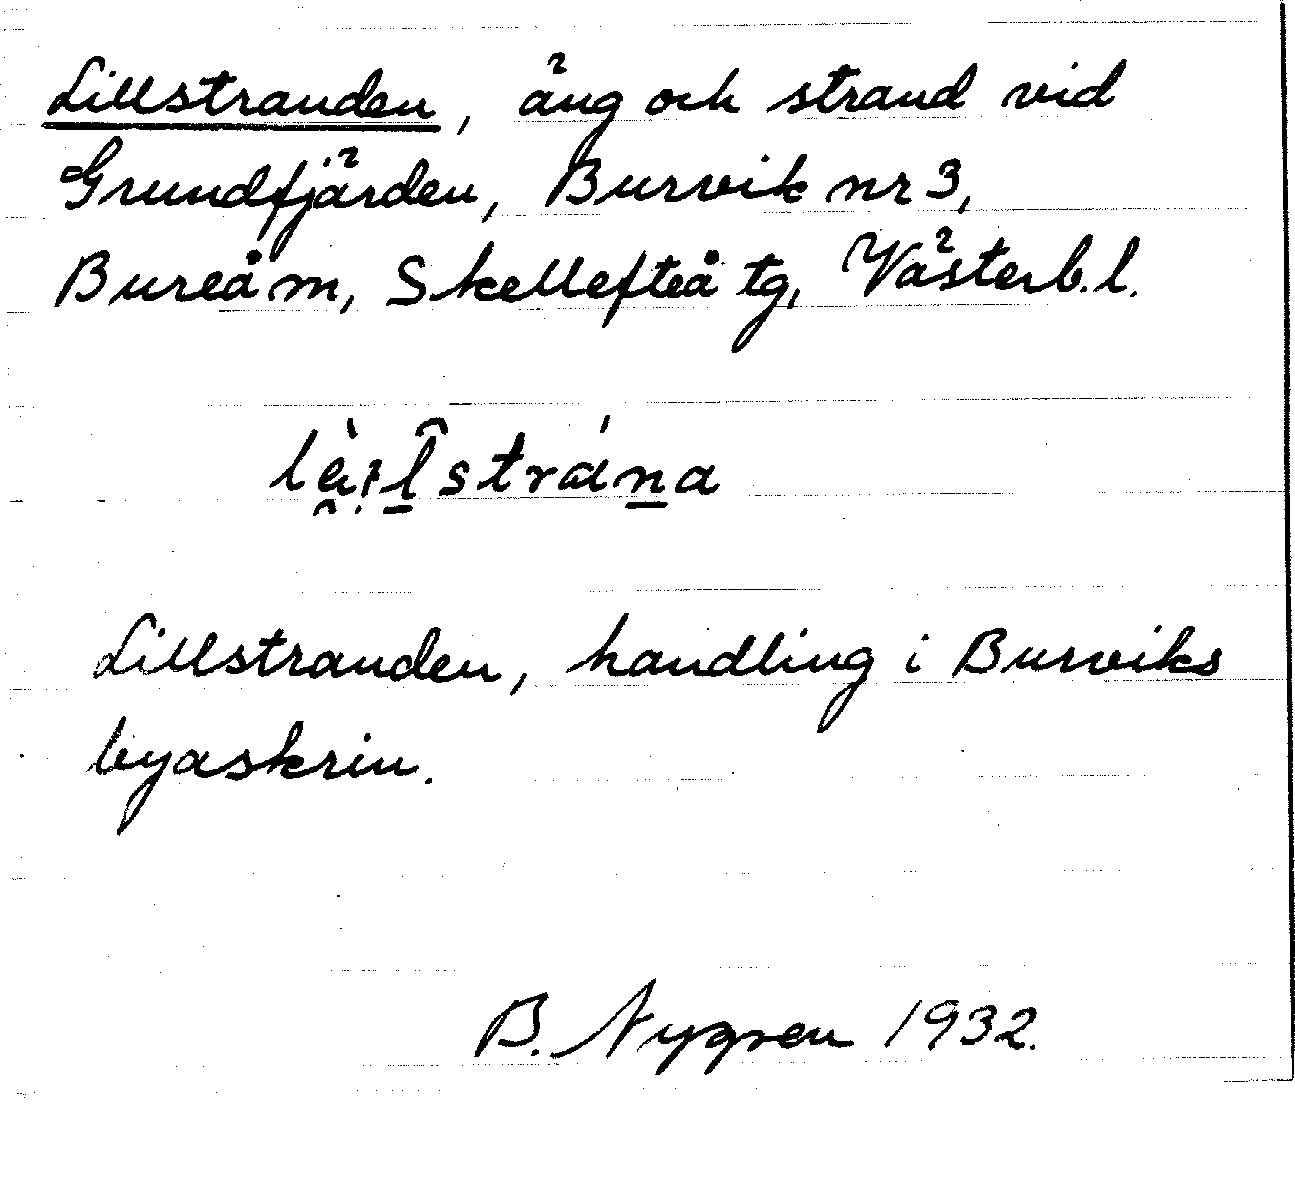 Lillstranden, äng och strand vid
Grundfjärden, Burvik nr 3,
Bureå m, Skellefteå tg, Västerb.l.
Lillstranden, handling i Burviks
byaskrin.
B. Nygren 1932.